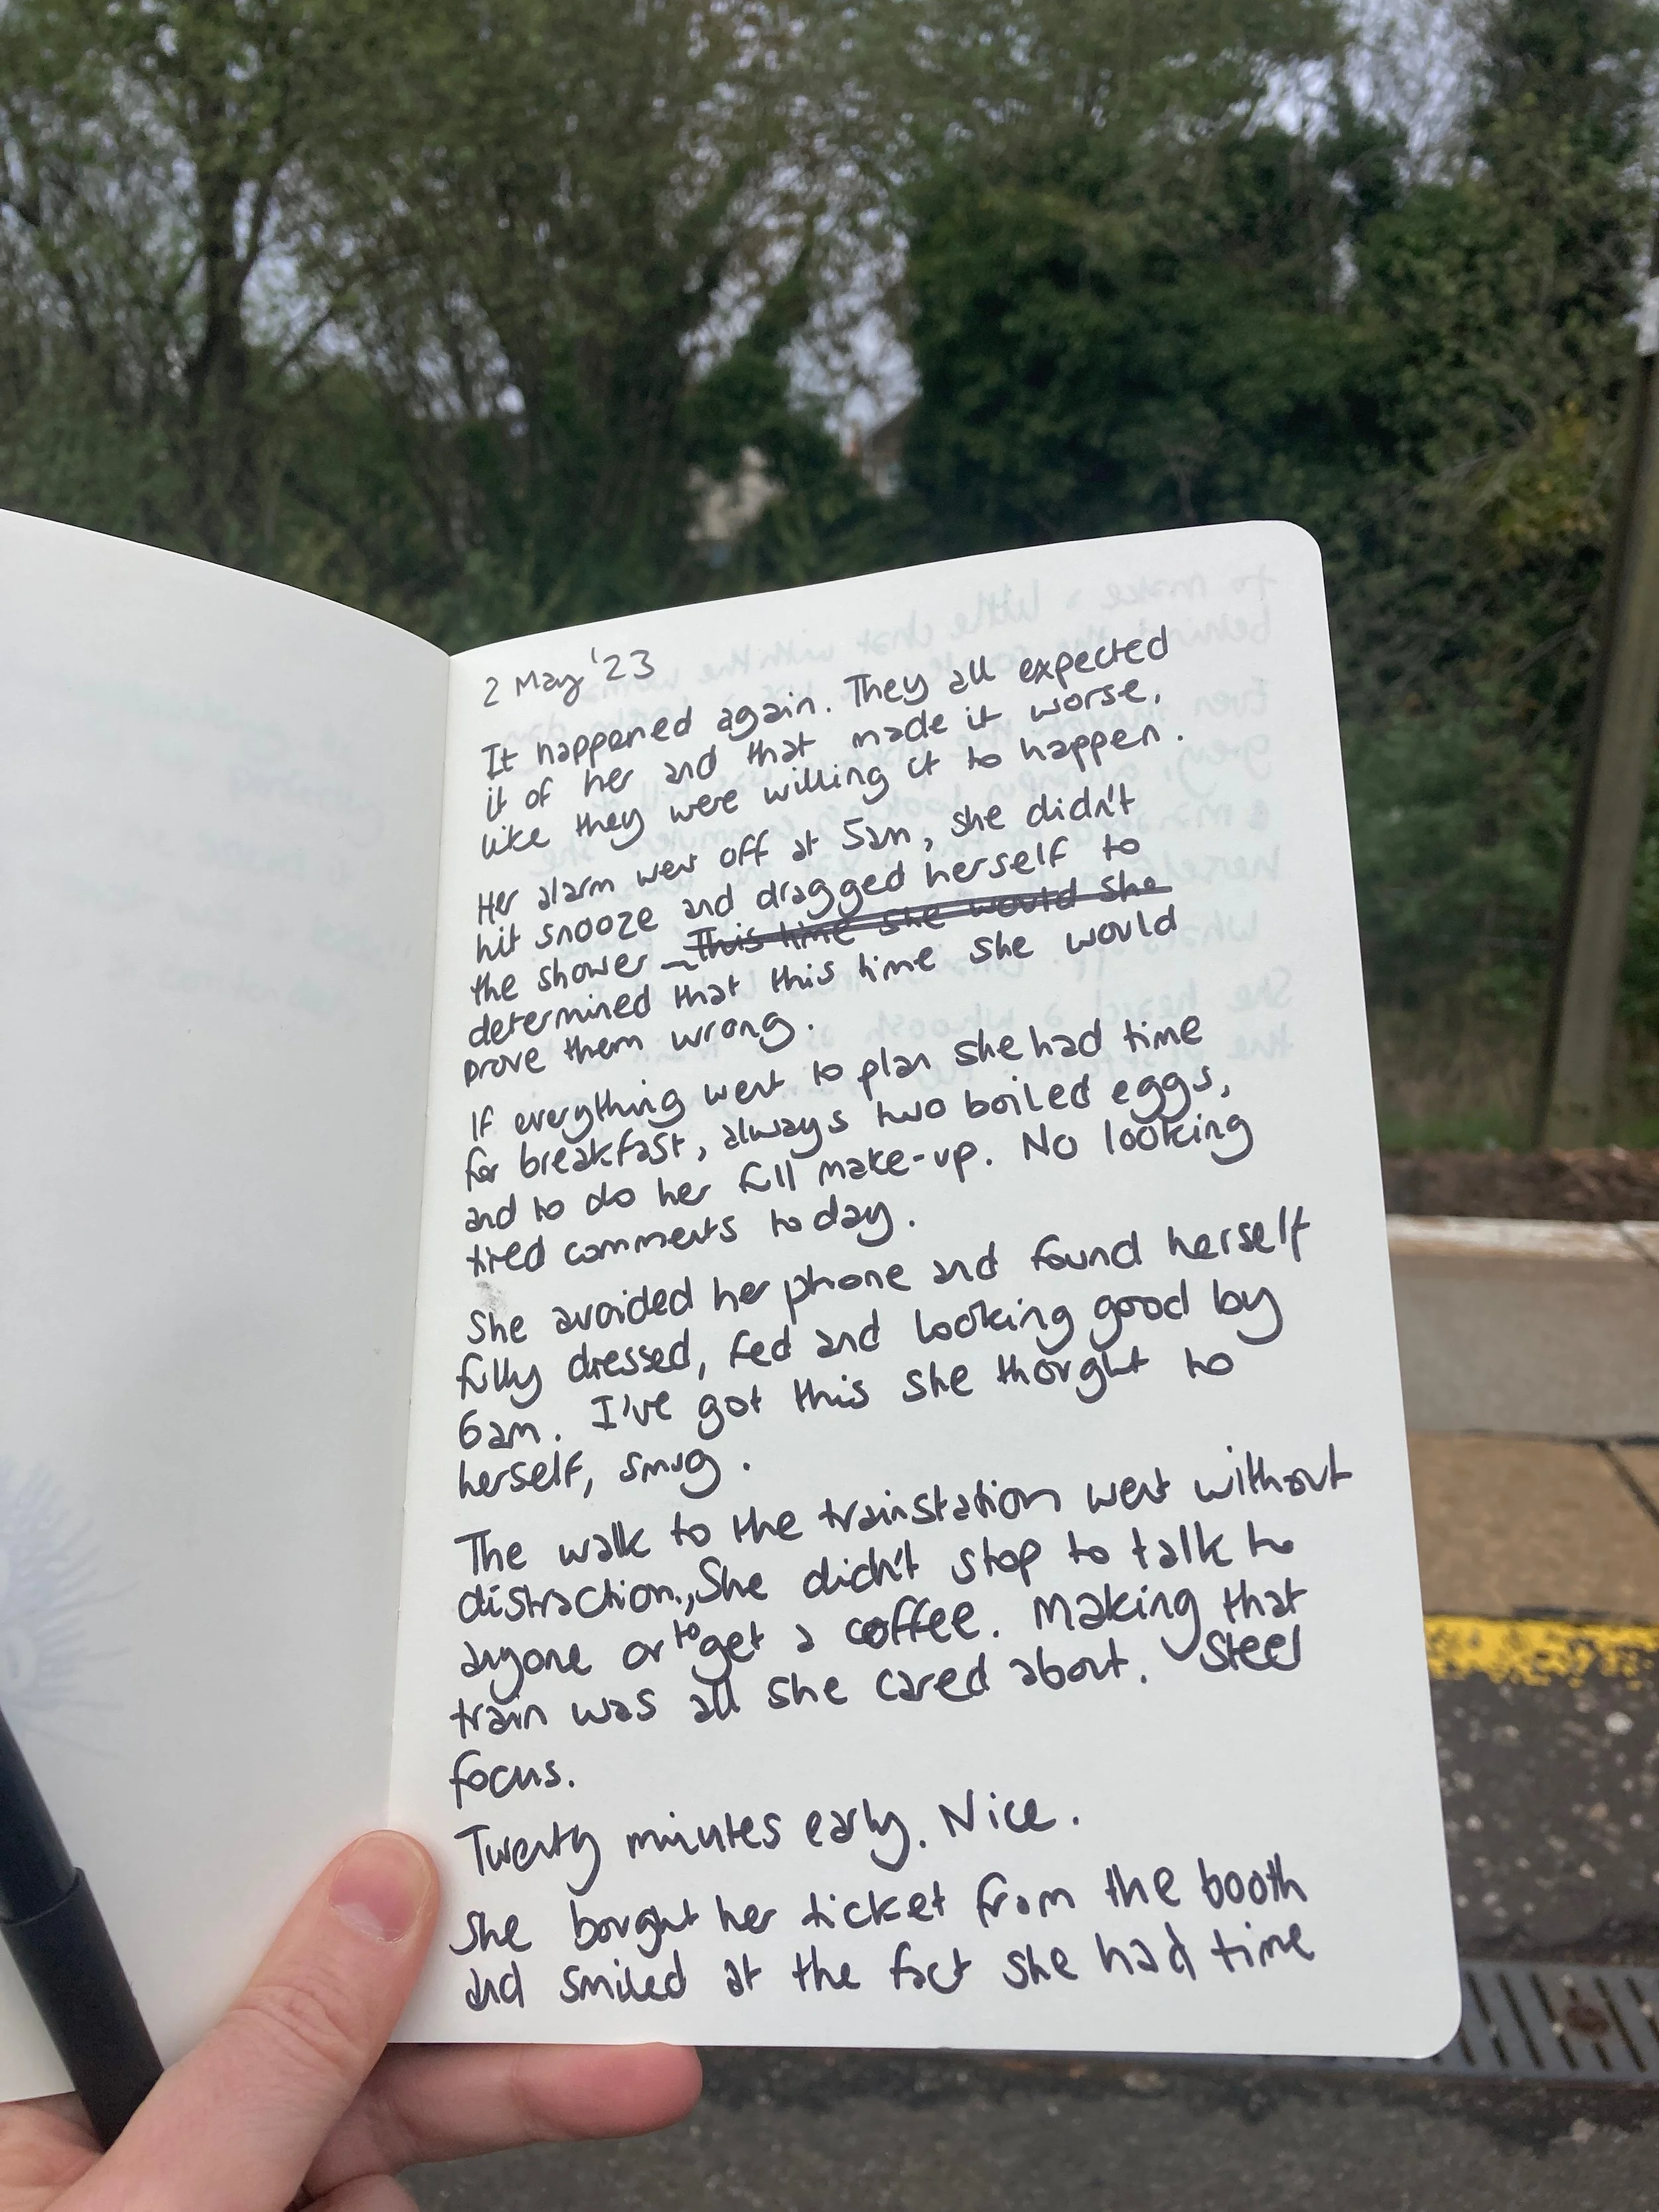 2 May '23
It happened again. They all expected
it of her and that made it worse,
like they were willing it to happen.
Her alarm went off at 5am, she didn't
hit snooze and dragged herself to
the shower – This time she would she
determined that this time she would
prove them wrong.
If everything went to plan she had time
for breakfast, always two boiled eggs,
and to do her full make-up. No looking
tired comments today.
She avoided her phone and found herself
fully dressed, fed and looking good by
6am. I've got this she thought to
herself, smug.
The walk to the trainstation went without
distraction., She didn't stop to talk to
anyone or to get a coffee. Making that
train was all she cared about. Steel
focus.
Twenty minutes early. Nice.
She bought her ticket from the booth
and smiled at the fact she had time